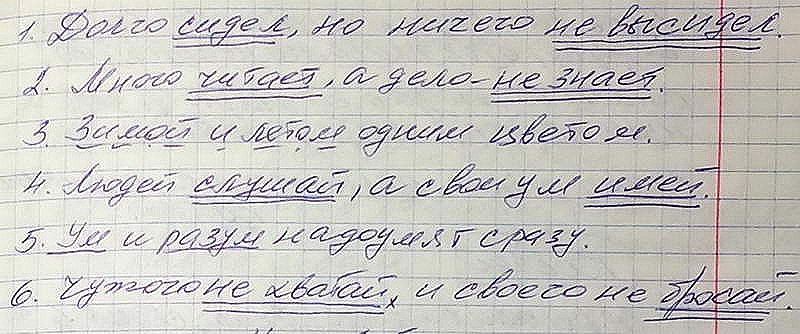 1. Долго сидел, но ничего не высидел.
2. Много читает, а дело - не знает.
3. Зимой и летом одним цветом.
4. Людей слушай, а свой ум имей.
5. Ум и разум надоумят сразу.
6. Чужого не хватай, и своего не бросай.